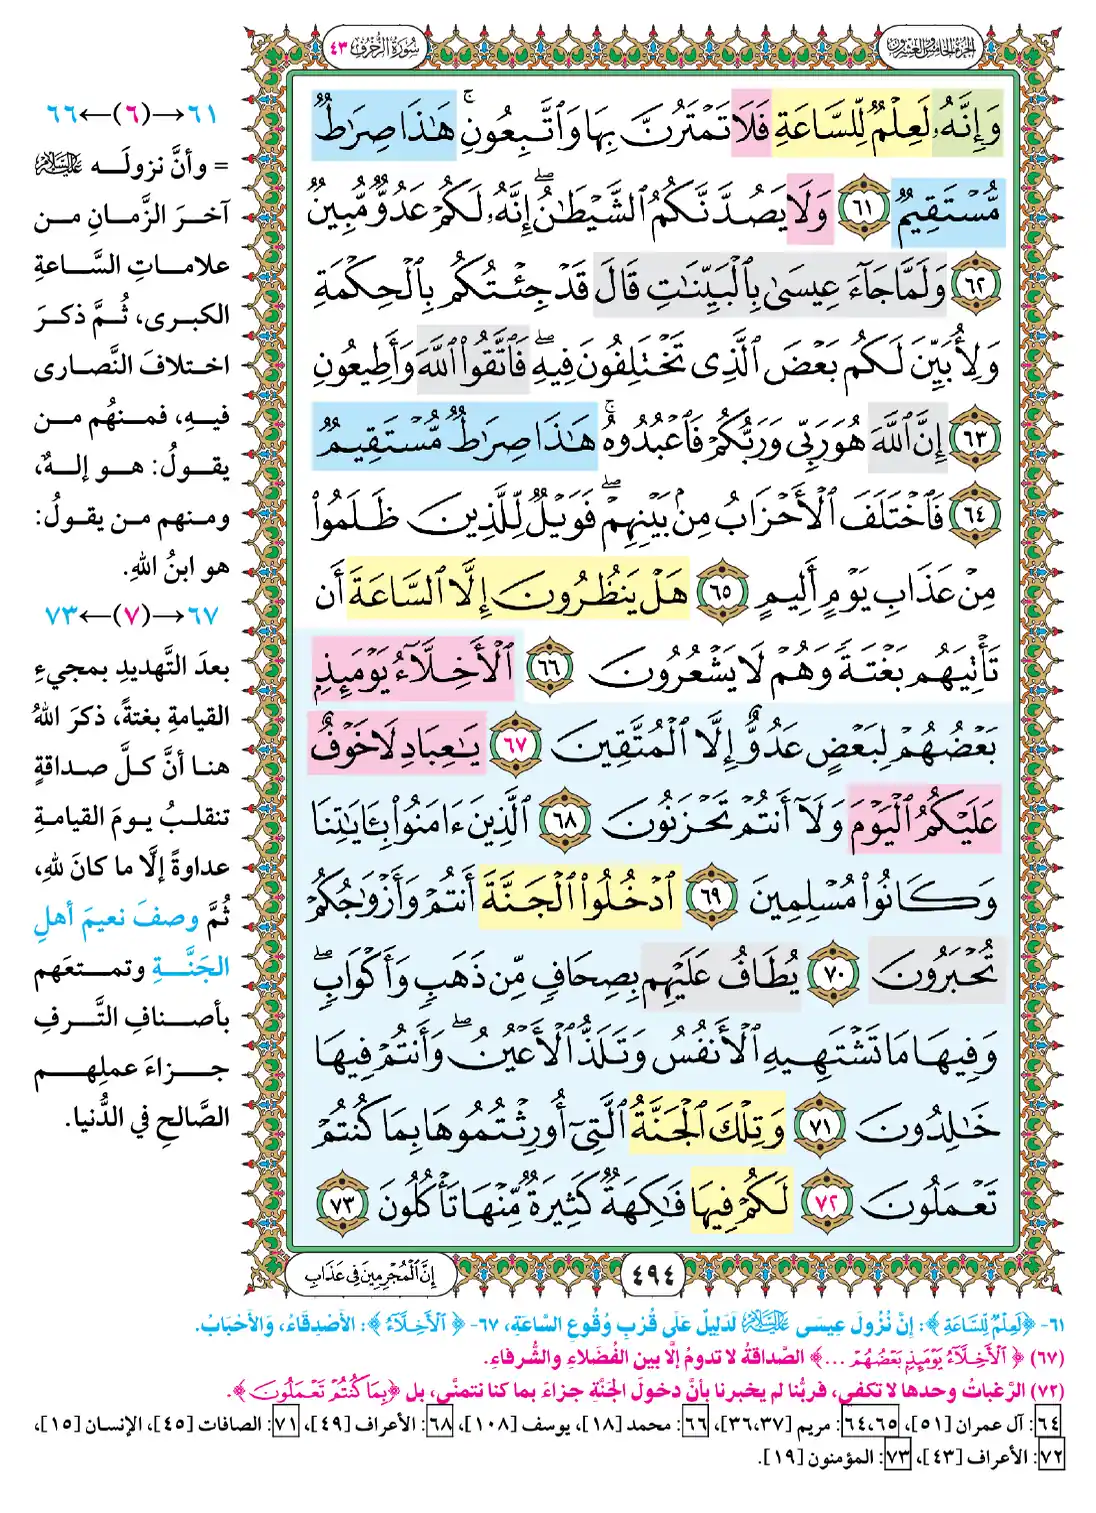 الجزء الخامس والعشرون
سورة الزخرف ٤٣
وَإِنَّهُۥ لَعِلْمٌ لِّلسَّاعَةِ فَلَا تَمْتَرُنَّ بِهَا وَٱتَّبِعُونِ ۚ هَٰذَا صِرَٰطٌ
مُّسْتَقِيمٌ ٦١ وَلَا يَصُدَّنَّكُمُ ٱلشَّيْطَٰنُ ۖ إِنَّهُۥ لَكُمْ عَدُوٌّ مُّبِينٌ
٦٢ وَلَمَّا جَآءَ عِيسَىٰ بِٱلْبَيِّنَٰتِ قَالَ قَدْ جِئْتُكُم بِٱلْحِكْمَةِ
وَلِأُبَيِّنَ لَكُم بَعْضَ ٱلَّذِى تَخْتَلِفُونَ فِيهِ ۖ فَٱتَّقُوا۟ ٱللَّهَ وَأَطِيعُونِ
٦٣ إِنَّ ٱللَّهَ هُوَ رَبِّى وَرَبُّكُمْ فَٱعْبُدُوهُ ۚ هَٰذَا صِرَٰطٌ مُّسْتَقِيمٌ
٦٤ فَٱخْتَلَفَ ٱلْأَحْزَابُ مِنۢ بَيْنِهِمْ ۖ فَوَيْلٌ لِّلَّذِينَ ظَلَمُوا۟
مِنْ عَذَابِ يَوْمٍ أَلِيمٍ ٦٥ هَلْ يَنظُرُونَ إِلَّا ٱلسَّاعَةَ أَن
تَأْتِيَهُم بَغْتَةً وَهُمْ لَا يَشْعُرُونَ ٦٦ ٱلْأَخِلَّآءُ يَوْمَئِذٍۭ
بَعْضُهُمْ لِبَعْضٍ عَدُوٌّ إِلَّا ٱلْمُتَّقِينَ ٦٧ يَٰعِبَادِ لَا خَوْفٌ
عَلَيْكُمُ ٱلْيَوْمَ وَلَآ أَنتُمْ تَحْزَنُونَ ٦٨ ٱلَّذِينَ ءَامَنُوا۟ بِـَٔايَٰتِنَا
وَكَانُوا۟ مُسْلِمِينَ ٦٩ ٱدْخُلُوا۟ ٱلْجَنَّةَ أَنتُمْ وَأَزْوَٰجُكُمْ
تُحْبَرُونَ ٧٠ يُطَافُ عَلَيْهِم بِصِحَافٍ مِّن ذَهَبٍ وَأَكْوَابٍ ۖ
وَفِيهَا مَا تَشْتَهِيهِ ٱلْأَنفُسُ وَتَلَذُّ ٱلْأَعْيُنُ ۖ وَأَنتُمْ فِيهَا
خَٰلِدُونَ ٧١ وَتِلْكَ ٱلْجَنَّةُ ٱلَّتِىٓ أُورِثْتُمُوهَا بِمَا كُنتُمْ
تَعْمَلُونَ ٧٢ لَكُمْ فِيهَا فَٰكِهَةٌ كَثِيرَةٌ مِّنْهَا تَأْكُلُونَ ٧٣
٤٩٤
إِنَّ ٱلْمُجْرِمِينَ فِى عَذَابِ
٦١→(٦)←٦٦
= وأنَّ نزولَـه عليه السلام
آخرَ الزَّمـانِ مـن
علامـاتِ السَّـاعةِ
الكبـرى، ثُـمَّ ذكـرَ
اختـلافَ النَّصـارى
فيـهِ، فمـنهُم مـن
يقـولُ: هـو إلـهٌ،
ومـنهم مـن يقـولُ:
هو ابنُ اللهِ.
٦٧→(٧)←٧٣
بعدَ التَّهديدِ بمجيءِ
القيامةِ بغتةً، ذكرَ اللهُ
هنـا أنَّ كـلَّ صداقـةٍ
تنقلـبُ يـومَ القيامـةِ
عداوةً إلَّا ما كانَ للهِ،
ثُمَّ وصفَ نعيمَ أهلِ
الجَنَّـةِ وتمـتعَهم
بأصـنافِ التَّـرفِ
جـزاءَ عملِهـم
الصَّالحِ في الدُّنيا.
٦١- ﴿لَعِلْمٌ لِّلسَّاعَةِ﴾: إِنَّ نُزُولَ عِيسَى عليه السلام لَدَلِيلٌ عَلَى قُرْبِ وُقُوعِ السَّاعَةِ، ٦٧- ﴿ٱلْأَخِلَّآءُ﴾: الأَصْدِقَاءُ، وَالأَحْبَابُ.
(٦٧) ﴿ٱلْأَخِلَّآءُ يَوْمَئِذٍۭ بَعْضُهُمْ ...﴾ الصَّداقةُ لا تدومُ إلَّا بين الفُضَلاءِ والشُّرفاءِ.
(٧٢) الرَّغباتُ وحدها لا تكفي، فربُّنا لم يخبرنا بأنَّ دخولَ الجَنَّةِ جزاءً بما كنا نتمنَّى، بل ﴿بِمَا كُنتُمْ تَعْمَلُونَ﴾.
٦٤: آل عمران [٥١]، ٦٤،٦٥: مريم [٣٦،٣٧]، ٦٦: محمد [١٨]، يوسف [١٠٨]، ٦٨: الأعراف [٤٩]، ٧١: الصافات [٤٥]، الإنسان [١٥]،
٧٢: الأعراف [٤٣]، ٧٣: المؤمنون [١٩].